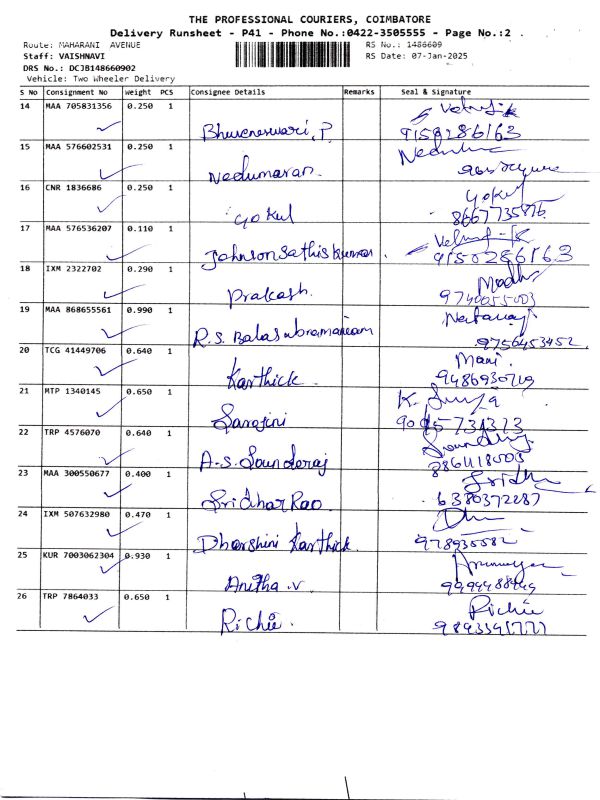 THE PROFESSIONAL COURIERS, COIMBATORE
Delivery Runsheet - P41 - Phone No.:0422-3505555 - Page No.:2 .
Route: MAHARANI AVENUE RS No.: 1486609
Staff: VAISHNAVI RS Date: 07-Jan-2025
DRS No.: DCJB148660902
Vehicle: Two Wheeler Delivery
S No Consignment No Weight PCS Consignee Details Remarks Seal & Signature
14 MAA 705831356 0.250 1
Bhuvneswari, P. 9150286163
15 MAA 576602531 0.250 1
Nedumaran.
16 CNR 1836686 0.250 1 Gokul
Gokul 8667735876
17 MAA 576536207 0.110 1
Johnson Sathis kumar. 9150286163
18 IXM 2322702 0.290 1 Madhu
Prakash.
19 MAA 868655561 0.990 1
R.S. Balasubramaniam 9756453452
20 TCG 41449706 0.640 1 Mani
Karthick
21 MTP 1340145 0.650 1 K. Surya
Sarojini
22 TRP 4576070 0.640 1
A.S. Sounderaj
23 MAA 300550677 0.400 1 Sridhar
Sridhar Rao 6380372287
24 IXM 507632980 0.470 1
Dharshini Karthick
25 KUR 7003062304 0.930 1
Anitha .V
26 TRP 7864033 0.650 1 Richie
Richie.